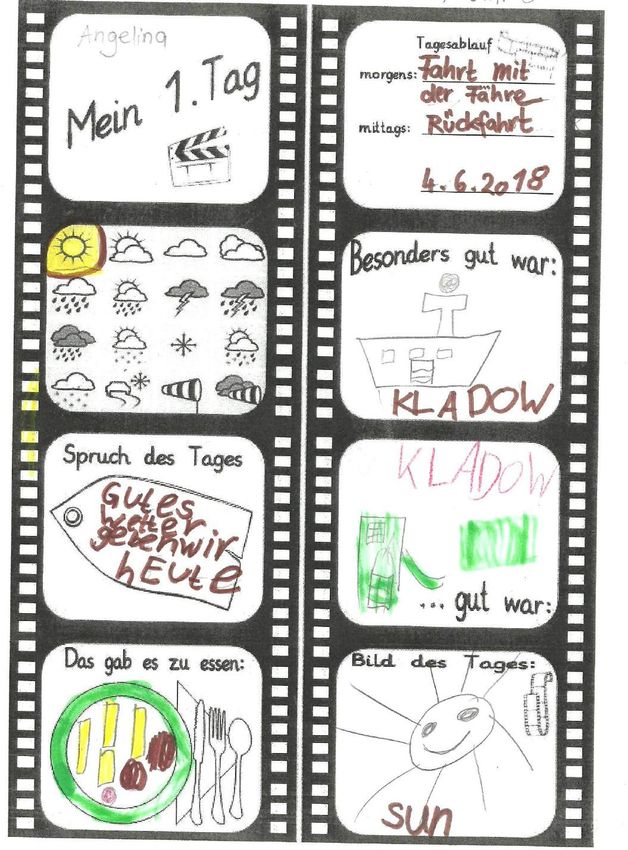 Angelina
Mein 1. Tag
Spruch des Tages
Gutes
wetter
geben wir
hEUTE
Das gab es zu essen:
Tagesablauf
morgens: Fahrt mit
der Fähre
mittags: Rückfahrt
4.6.2018
Besonders gut war:
KLADOW
KLADOW
... gut war:
Bild des Tages:
sun